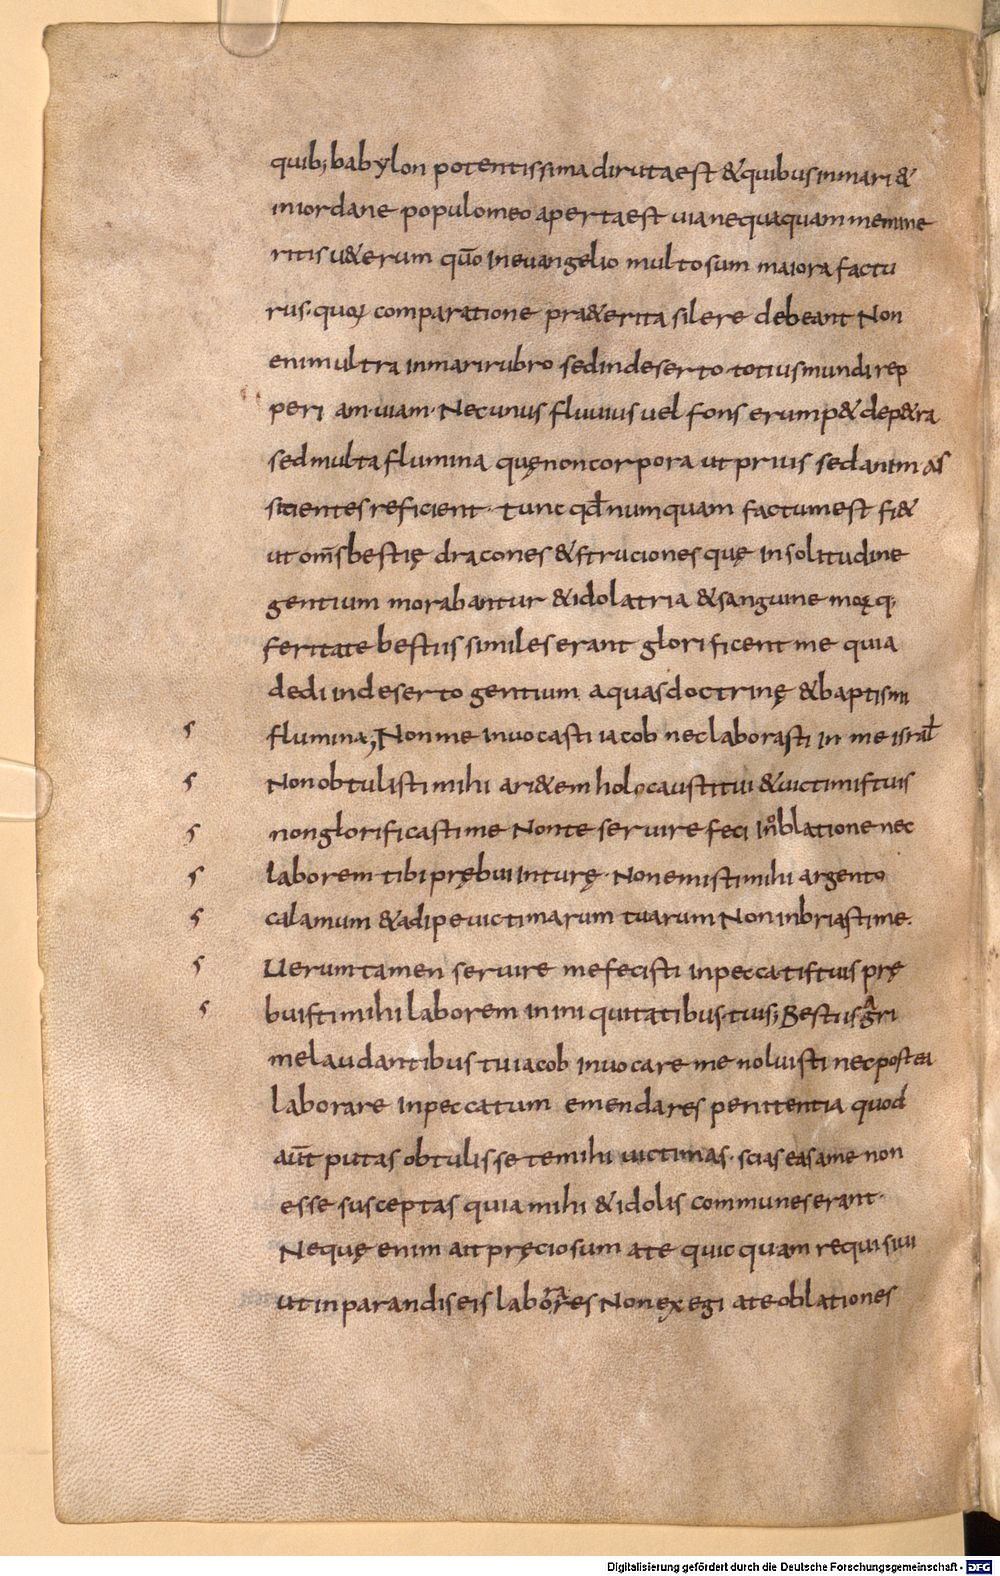 quib; babylon potentissima diruta est & quibus in mari &
in iordane populo meo aperta est uia nequaquam memine
ritis u&erum qūo in euangelio multo sum maiora factu
rus. quoꝝ comparatione pra&erita silere debeant Non
enim ultra in mari rubro sed in deserto totius mundi rep
peri am uiam. Nec unus fluuius uel fons erump& de p&ra
sed multa flumina quę non corpora ut prius sed animas
sitientes reficient. tunc qđ numquam factum est fi&
ut om̄s bestię dracones & struciones quę in solitudine
gentium morabantur & idolatria & sanguine moꝝ q;
feritate bestiis similes erant glorificent me quia
dedi in deserto gentium aquas doctrinę & baptismi
flumina; Non me inuocasti iacob nec laborasti in me israł
Non obtulisti mihi ari&em holocausti tui & uictimis tuis
non glorificasti me Non te seruire feci in oblatione nec
laborem tibi prębui in turę. Non emisti mihi argento
calamum & adipe uictimarum tuarum Non inbriasti me.
Uerum tamen seruire me fecisti in peccatis tuis prę
buisti mihi laborem in iniquitatibus tuis; Bestiis agri
me laudantibus tu iacob inuocare me noluisti nec postea
laborare in peccatum emendares penitentia quod
aūt putas obtulisse te mihi uictimas. scias eas a me non
esse susceptas quia mihi & idolis communes erant.
Nequę enim ait pręciosum a te quicquam requisiui
ut in parandis eis labores Non exegi a te oblationes
Digitalisierung gefördert durch die Deutsche Forschungsgemeinschaft - DFG